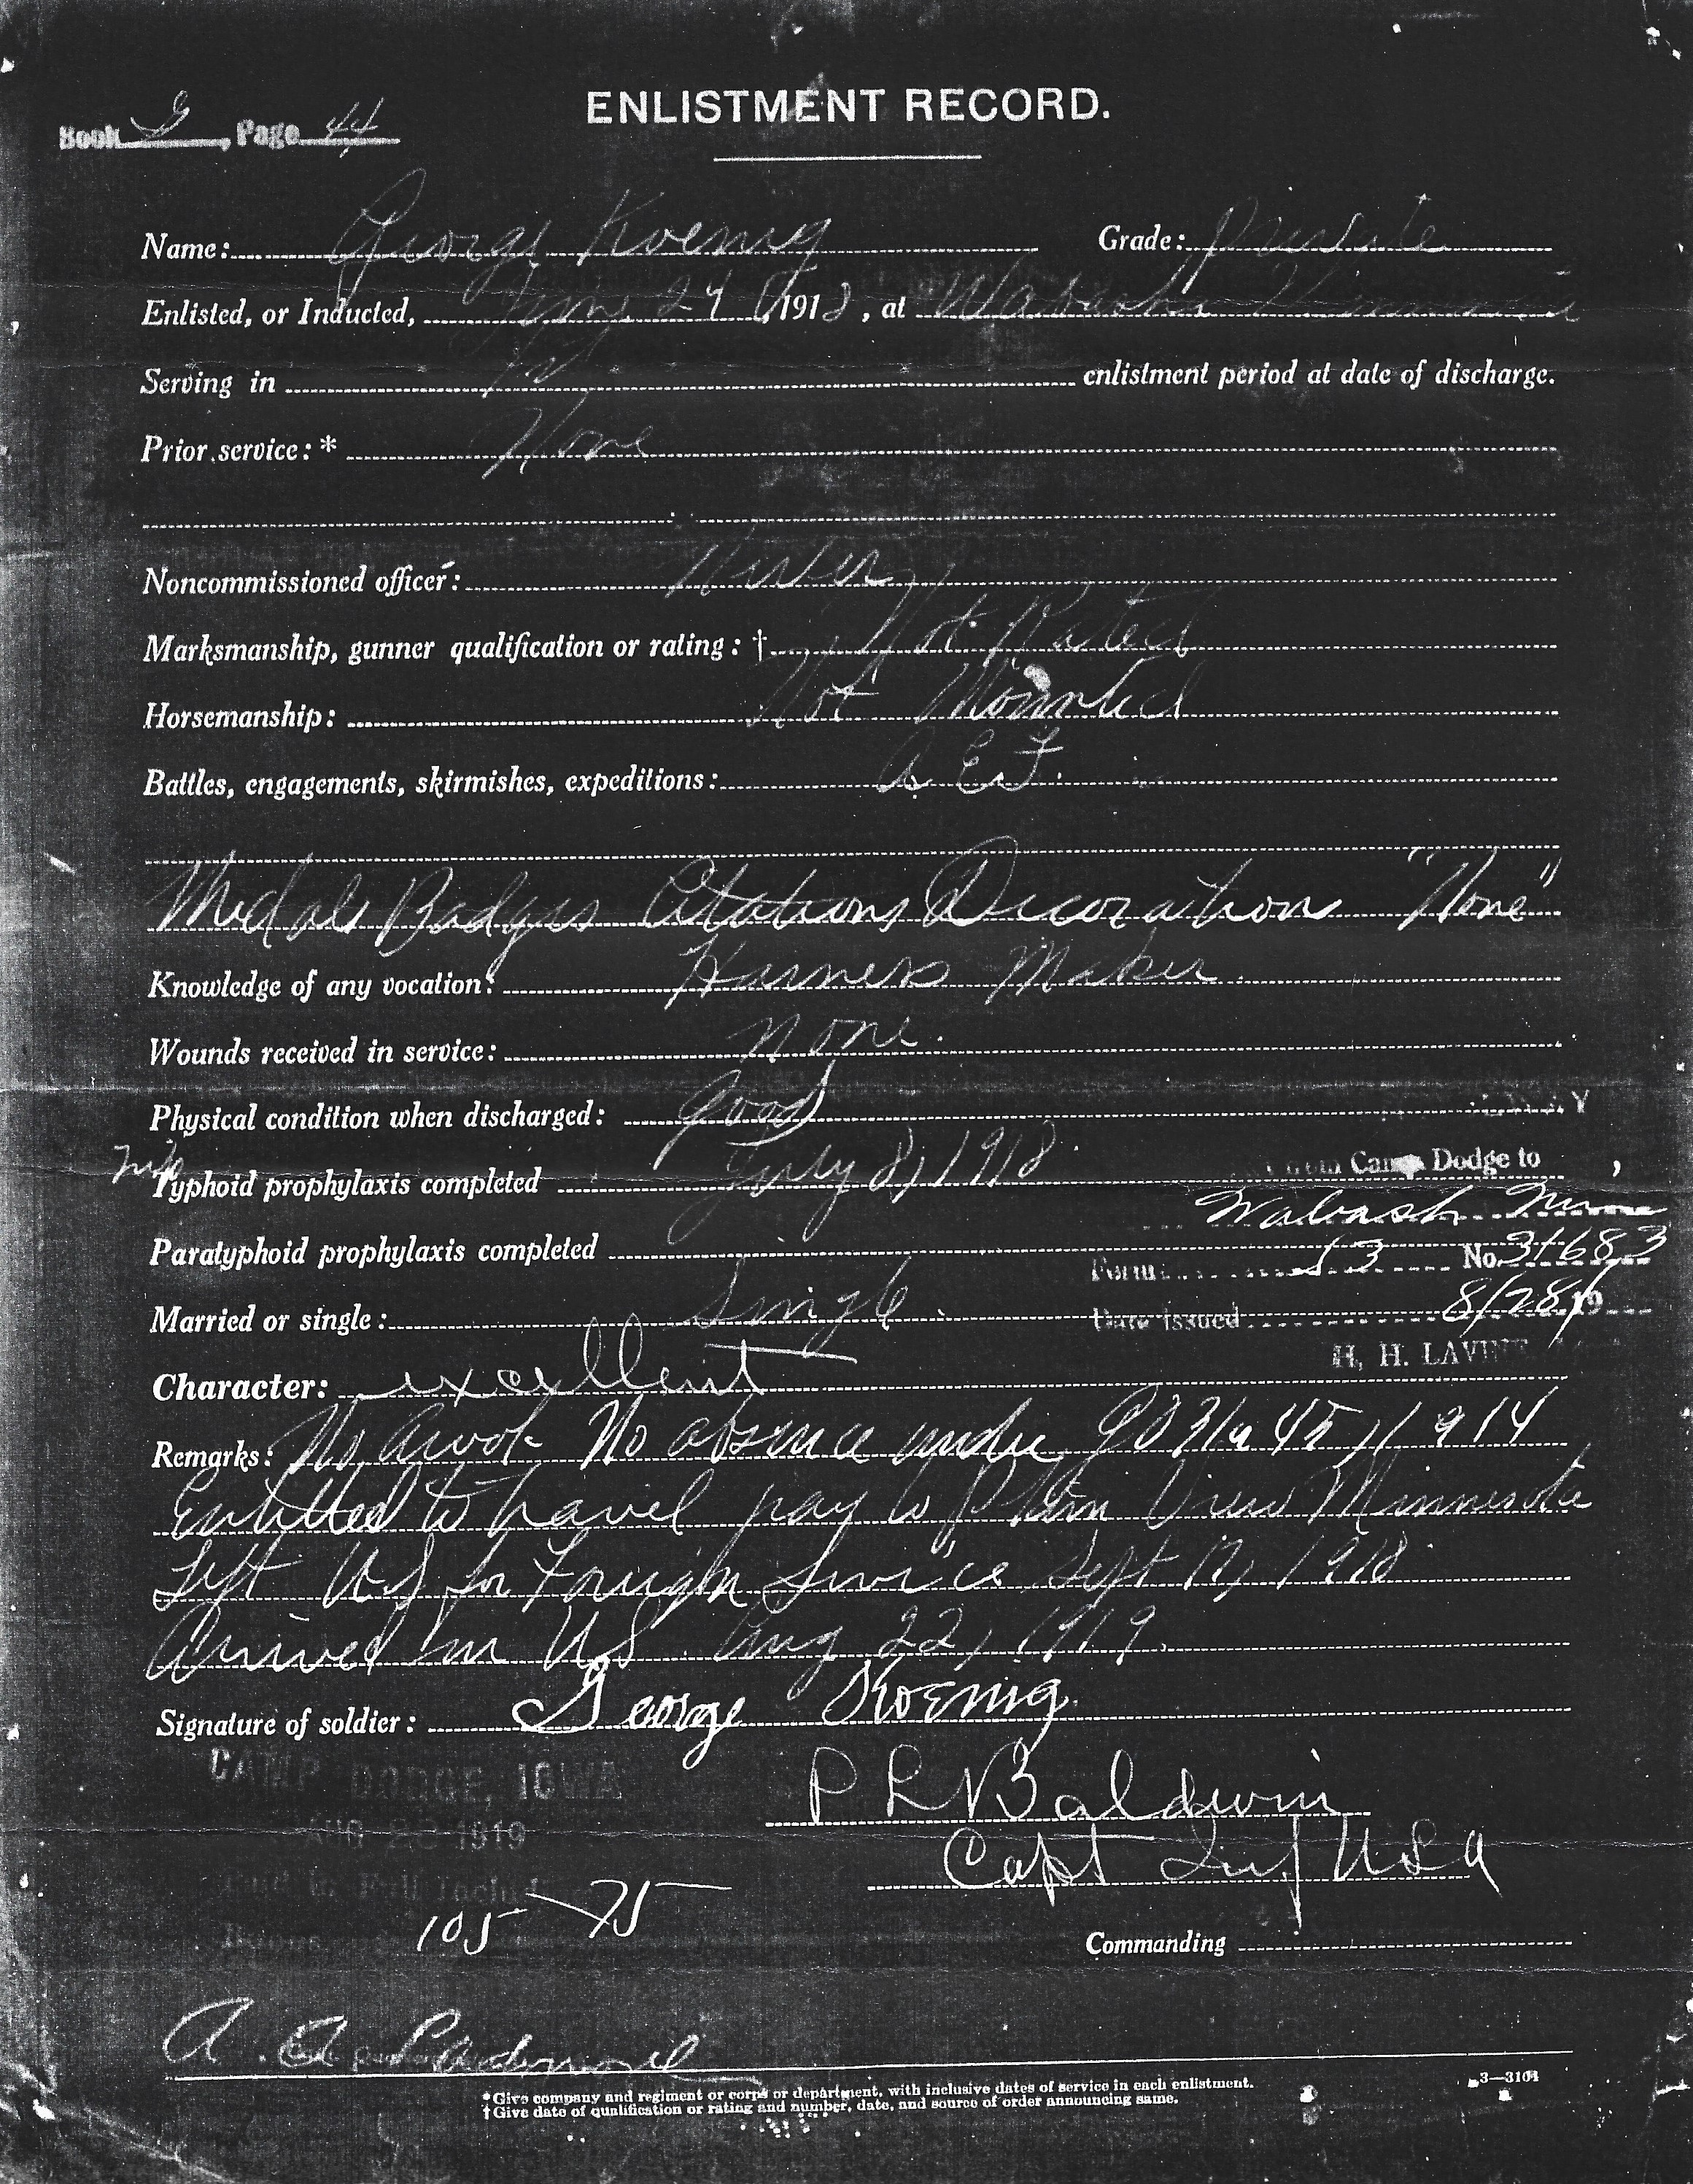 ENLISTMENT RECORD.
Book G, Page 44
Name: George Koenig Grade: private
Enlisted, or Inducted, June 24 1918, at Wabasha Minnesota
Serving in enlistment period at date of discharge.
Prior service:* None
Noncommissioned officer: Never
Marksmanship, gunner qualification or rating:† Not Rated
Horsemanship: Not Mounted
Battles, engagements, skirmishes, expeditions: A E F.
Medals Badges Citations Decorations "None"
Knowledge of any vocation: Harness Maker
Wounds received in service: None.
Physical condition when discharged: Good
Typhoid prophylaxis completed July 8, 1918
from Camp Dodge to
Wabash Minn
Paratyphoid prophylaxis completed
Form 13 No. 31683
Married or single: Single
Date issued 8/28/19
H. H. LAVINE
Character: excellent
Remarks: No Awol No absence under GO 31/9 45 / 1914
Entitled to travel pay to Plain View Minnesota
Left US for Foreign Service Sept 1918
Arrived in US Aug 22, 1919.
Signature of soldier: George Koenig
CAMP DODGE, IOWA
AUG 28 1919
P L Baldwin
Capt Inf USA
105 75
Commanding
A. A. Padmore
*Give company and regiment or corps or department, with inclusive dates of service in each enlistment.
†Give date of qualification or rating and number, date, and source of order announcing same.
3—3104